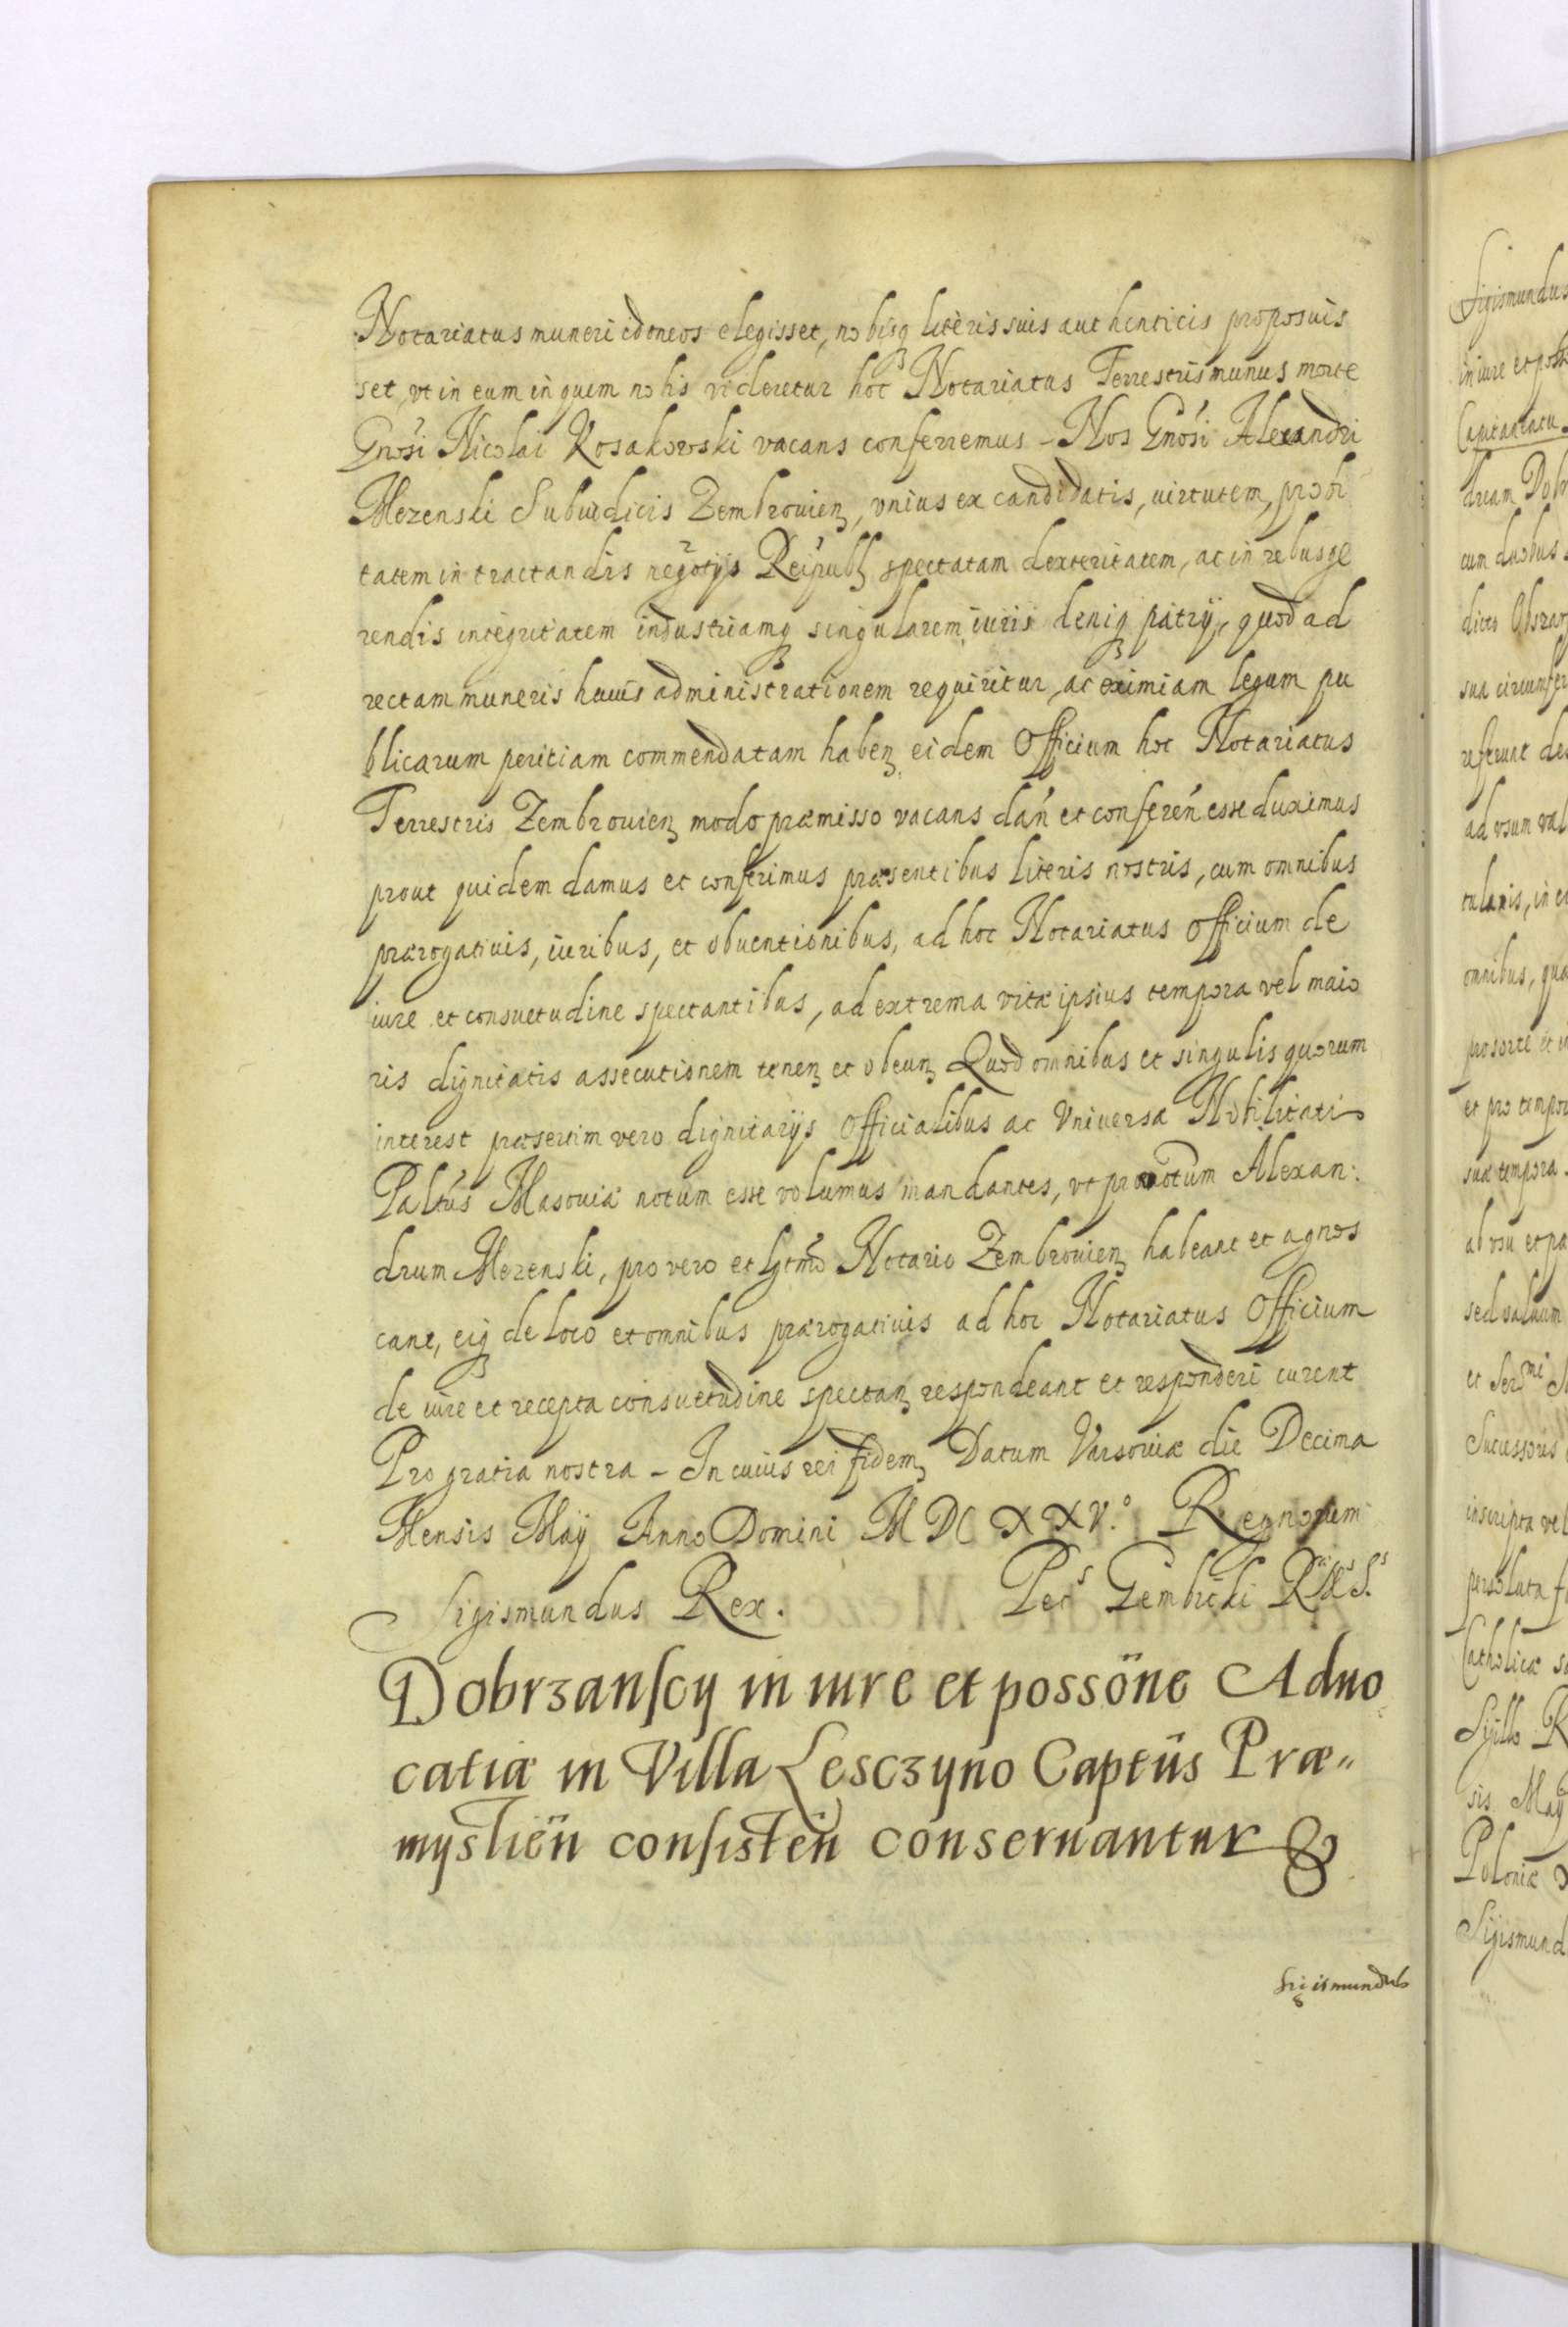 Notariatus muneri idoneos elegisset, nobisq literis suis authenticis proposuis
set, vt in eum in quem nobis videretur hoc Notariatus Terrestris munus morte
Gnosi Nicolai Kosakowski vacans conferremus – Nos Gnosi Alexandri
Mezenski Subiudicis Zembrouien, vnius ex candidatis, uirtutem, probi
tatem in tractandis negotys Reipubl spectatam dexteritatem, ac in rebus ge
rendis integritatem industriamq singularem iuris deniq patrij, quod ad
rectam muneris huius administrationem requiritur, ac eximiam legum pu
blicarum peritiam commendatam haben eidem Officium hoc Notariatus
Terrestris Zembrouien modo præmisso vacans dan et conferen esse duximus
prout quidem damus et conferimus præsentibus literis nostris, cum omnibus
prærogatiuis, iuribus, et obuentionibus, ad hoc Notariatus Officium de
iure et consuetudine spectantibus, ad extrema vitæ ipsius tempora vel maio
ris dignitatis assecutionem tenen et obeun Quod omnibus et singulis quorum
interest præsertim vero dignitarijs Officialibus ac Vniuersæ Nobilitati
Paltus Masouiæ notum esse volumus mandantes, vt pronotum Alexan:
drum Mezenski, pro vero et lgtmo Notario Zembrouien habeant et agnos
cant, eiq de loco et omnibus prærogatiuis ad hoc Notariatus Officium
de iure et recepta consuetudine spectan respondeant et responderi curent
Pro gratia nostra – In cuius rei fidem Datum Varsouiæ die Decima
Mensis Maij Anno Domini M DC XXV.º Regnorum
Sigismundus Rex. Pets Gembicki
Dobrzanscy in iure et possone Aduo
catiæ in Villa Lesczyno Captus Præ„
myslien consisten conseruantur &
Sigismundus
Sigismundus
in iure et
Capitaneatu
duam Dobr
cum duobus
dictas
sua circumfer
referunt de
ad vsum val
tularis, in e
omnibus, qua
et pro tempor
suæ tempora
ab vsu et pa
sed saluum
et Sermi
Successoris
inscripta vel
persoluta f
Catholicæ s
Sigillo R
sis Maij
Poloniæ
Sigismund